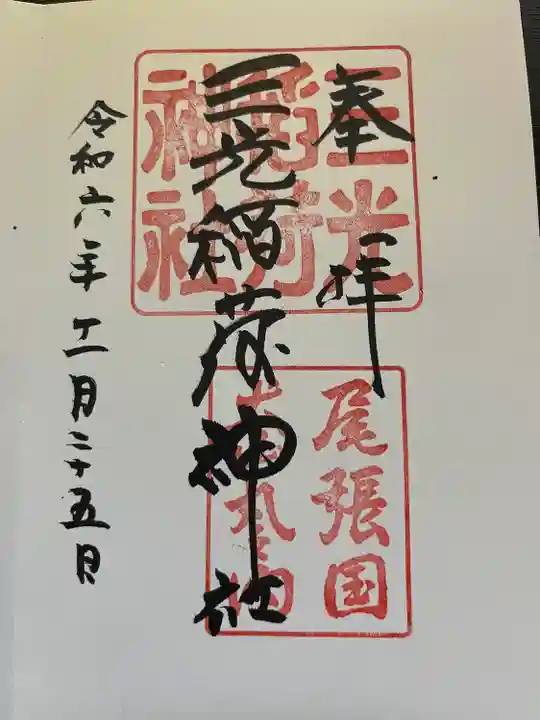 奉拝
三光稲荷神社
令和六年十一月二十五日
三光
稲荷
神社
尾張国